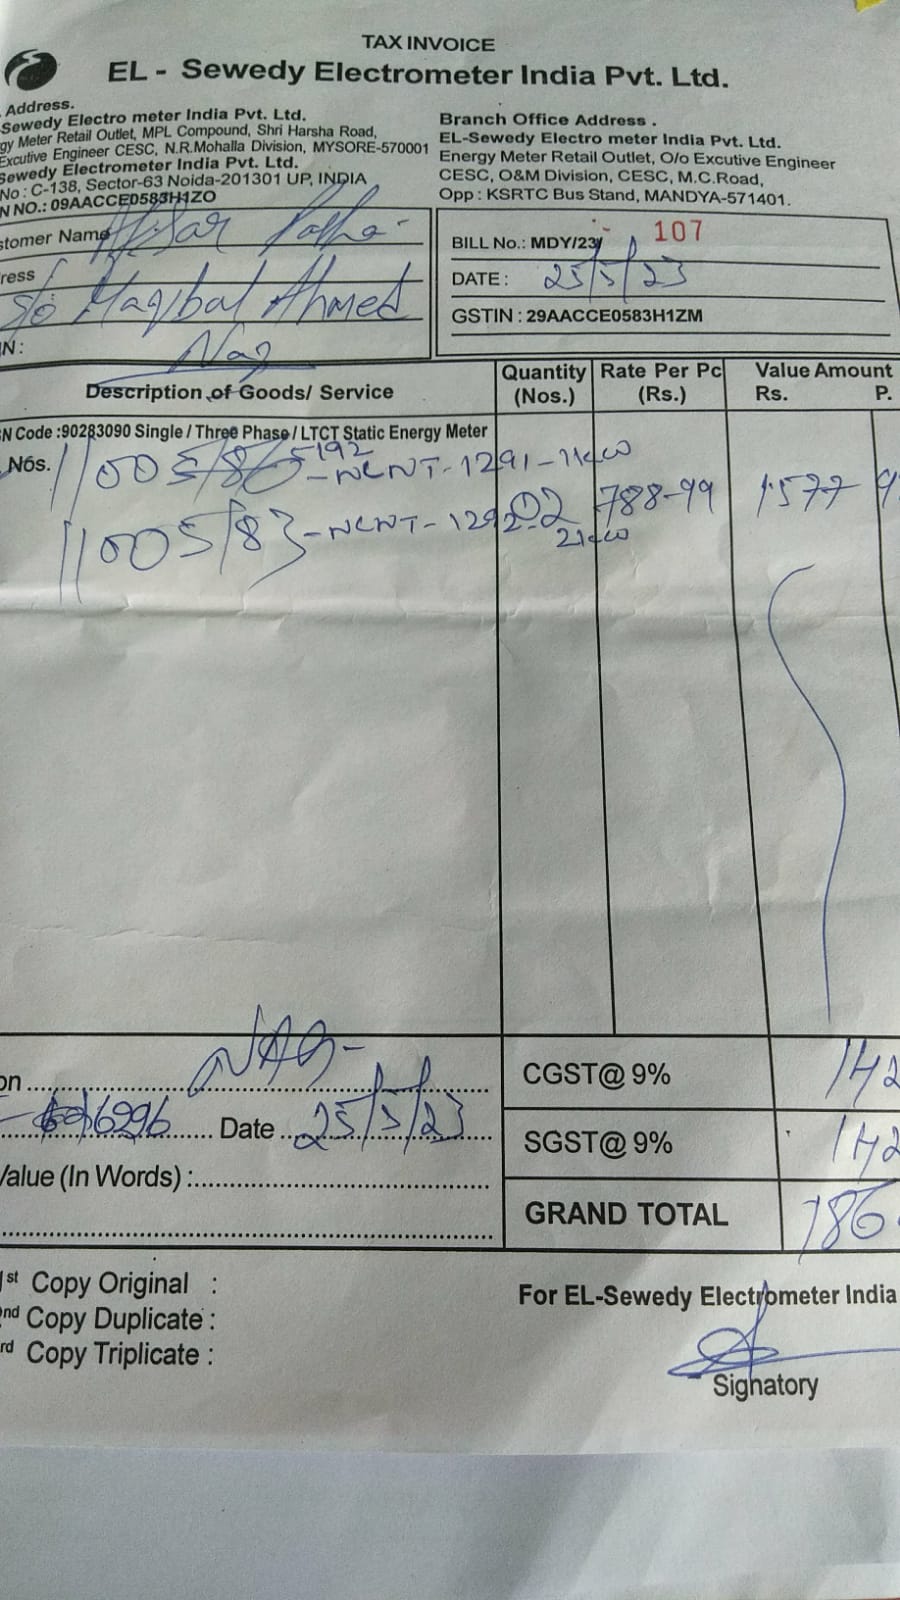 TAX INVOICE
EL - Sewedy Electrometer India Pvt. Ltd.
Address.
Sewedy Electro meter India Pvt. Ltd.
gy Meter Retail Outlet, MPL Compound, Shri Harsha Road,
Excutive Engineer CESC, N.R.Mohalla Division, MYSORE-570001
Sewedy Electrometer India Pvt. Ltd.
No : C-138, Sector-63 Noida-201301 UP, INDIA
N NO.: 09AACCE0583H1ZO
Branch Office Address .
EL-Sewedy Electro meter India Pvt. Ltd.
Energy Meter Retail Outlet, O/o Excutive Engineer
CESC, O&M Division, CESC, M.C.Road,
Opp : KSRTC Bus Stand, MANDYA-571401.
stomer Name Afsar Pasha
ress
S/o Maqbal Ahmed
N : Nag
BILL No.: MDY/23/ 107
DATE : 25/5/23
GSTIN : 29AACCE0583H1ZM
Description of Goods/ Service Quantity (Nos.) Rate Per Pc (Rs.) Value Amount Rs. P.
N Code :90283090 Single / Three Phase / LTCT Static Energy Meter
Nos. 11005192 - NCNT-1291-1kw
11005183 - NCNT-1292-2kw 02 788-99 1577 9
on NAG-
6296 Date 25/5/23
Value (In Words) :
CGST@ 9% 142
SGST@ 9% 142
GRAND TOTAL 186
1st Copy Original :
nd Copy Duplicate :
rd Copy Triplicate :
For EL-Sewedy Electrometer India
Signatory